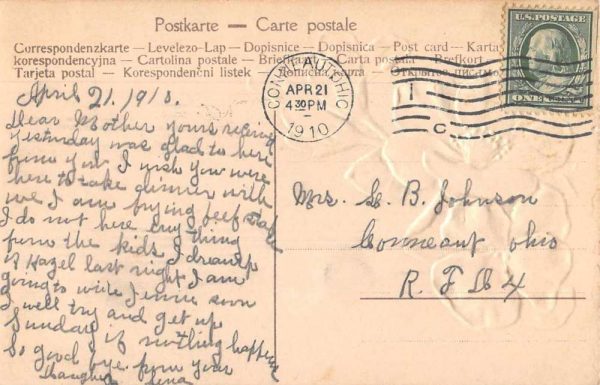 Postkarte — Carte postale
Correspondenzkarte — Levelezo-Lap — Dopisnice — Dopisnica — Post card — Karta
korespondencyjna — Cartolina postale — Carta postala — Brefkort
Tarjeta postal — Korespondenční listek —
U.S. POSTAGE
ONE CENT
APR 21
4 30 PM
1910
C
April 21. 1910.
Dear Mother yours received
yesterday was glad to here
from you I wish you were
here to take dinner with
me I am frying beef stake
I do not here eny thing
from the kids I dreamp
of Hazel last night I am
going to write Jennie soon
I well try and get up
Sunday if nothing happens
So good bye from your
Mrs. G. B. Johnson
Conneaut Ohio
R. F. D. 4